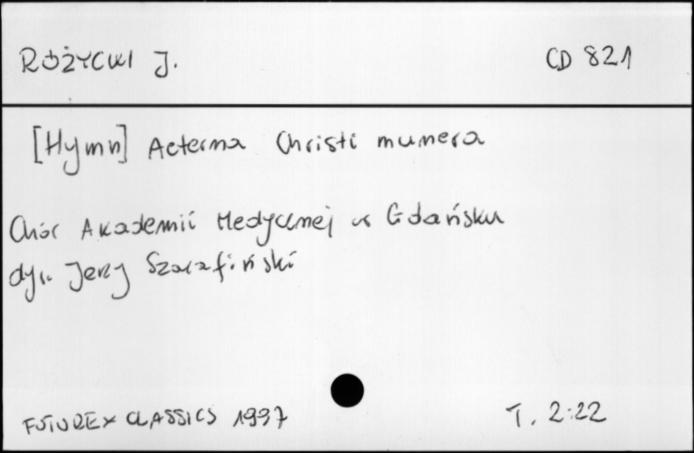 RÓŻYCKI J. CD 821
[Hymn] Aeterna Christi munera
Chór Akademii Medycznej w Gdańsku
dyr. Jerzy Szarafiński
FUTUREX CLASSICS 1997 T. 2:22